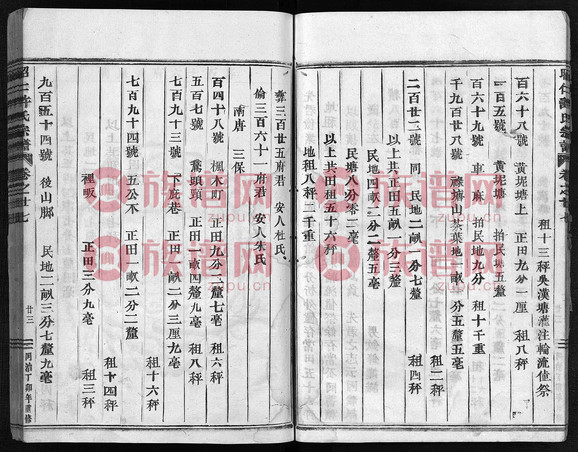 租十三秤吳漢塘蔭注輪流值祭
百六十八號 黃坭塘上 正田九分一厘 租八秤
一百五號 黃坭塘 拍民地五分
百六十九號 車麻 拍民地九分 租十千重
千九百廿八號 塘山茶葉地一畝 分五釐五毫
同 民地二畝一分七釐 租二秤
二百廿三號 租四秤
以上共正田五畝一分三釐
民地四畝二分二釐五毫
民塘八分零二毫
以上共田租五十六秤
地租八秤二千重
彝三百廿五府君 安人杜氏
倫三百六十一府君 安人朱氏
南唐 三保
百四十八號 楓木町 正田九分二釐 租六秤
五百七號 喬墈頭 正田一畝四釐九毫 租八秤
七百九十三號 下庇巷
正田一畝二分三厘九毫 租十六秤
七百九十四號 五公不 正田一畝二分二釐
租十四秤
裡畈 正田三分九毫 租三秤
九百五十四號 後山腳 民地二畝三分七釐九毫
昭仁許氏宗譜 卷之廿七
廿三
同治丁卯年重修
族谱网